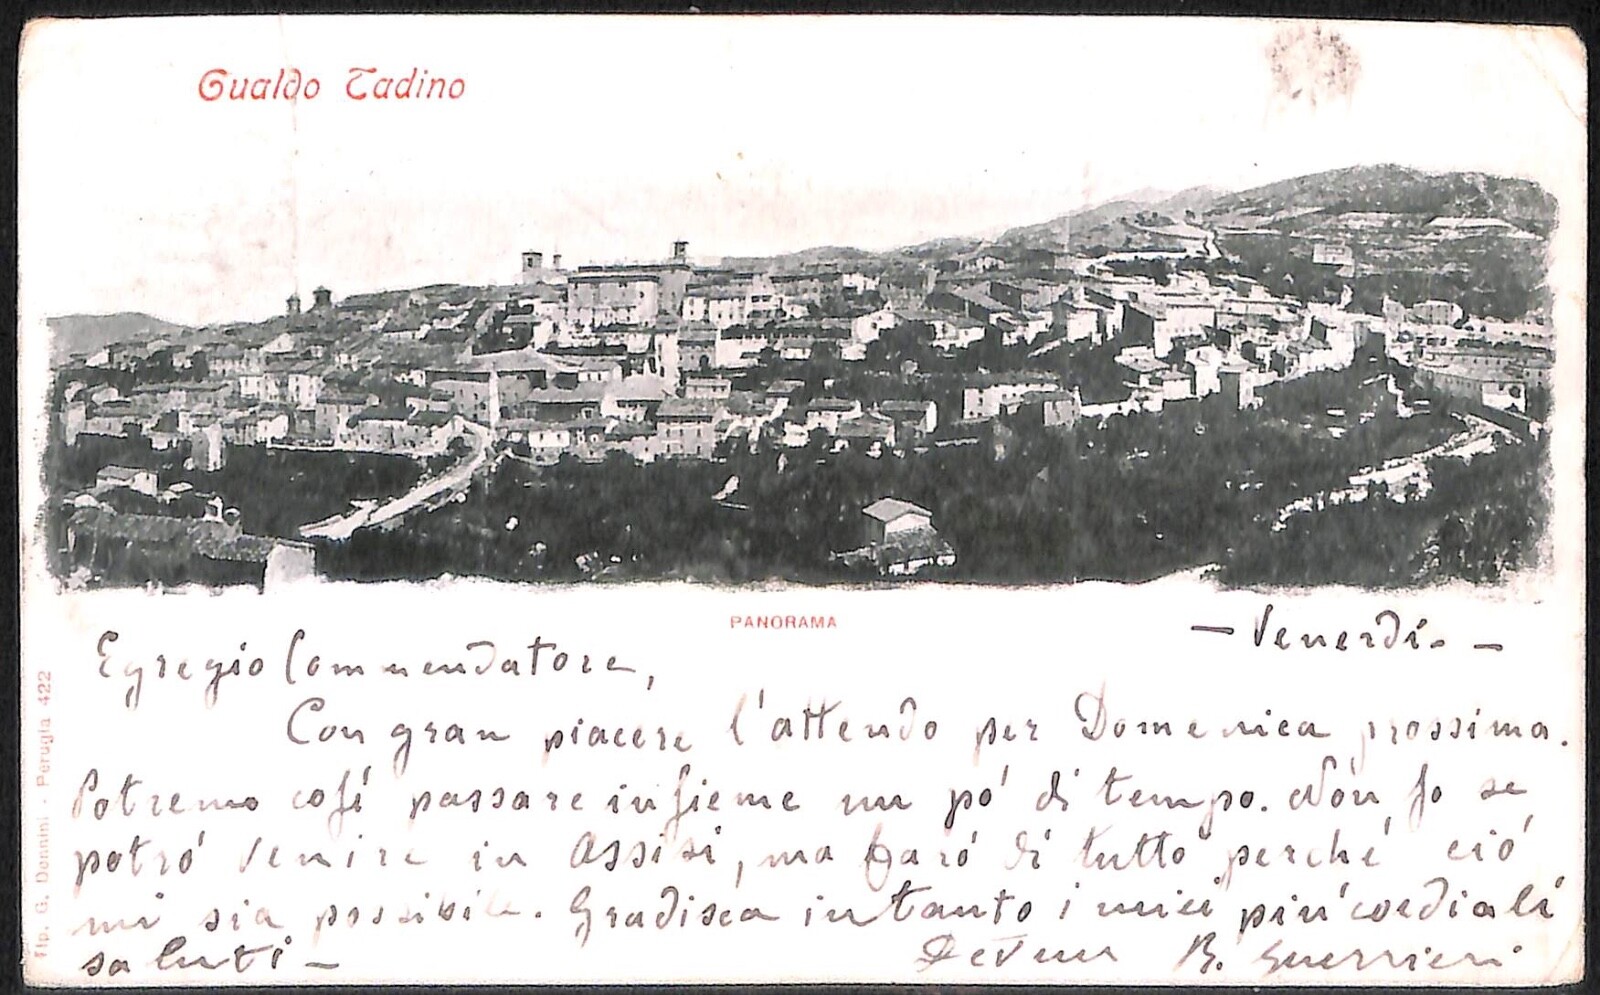 Gualdo Tadino
PANORAMA
— Venerdí. —
Egregio Commendatore,
Con gran piacere l'attendo per Domenica prossima.
Potremo cosí passare insieme un pó di tempo. Nón so se
potró venire in Assisi, ma faró di tutto perché ció
mi sia possibile. Gradisca intanto i miei piú cordiali
saluti —
Devmo B. Guerrieri
Tip. G. Donnini - Perugia 422